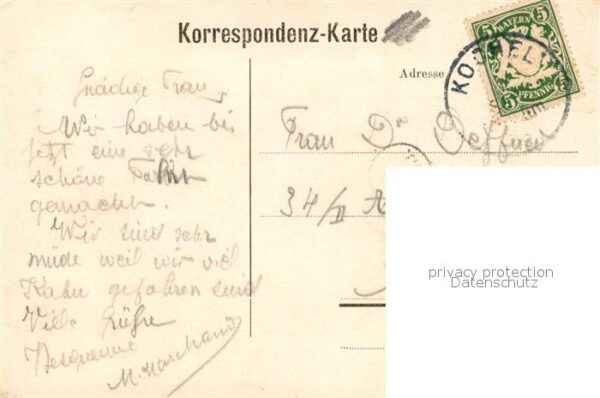 Korrespondenz-Karte
BAYERN
5 5
PFENNIG
5 5
KOCHEL
Adresse
Gnädige Frau,
Wir haben bis
jetzt eine sehr
schöne Fahrt
gemacht.
Wir sind sehr
müde weil wir viel
Kahn gefahren sind
Viele Grüße
M. Marchand
Frau Dr
34/II
privacy protection
Datenschutz